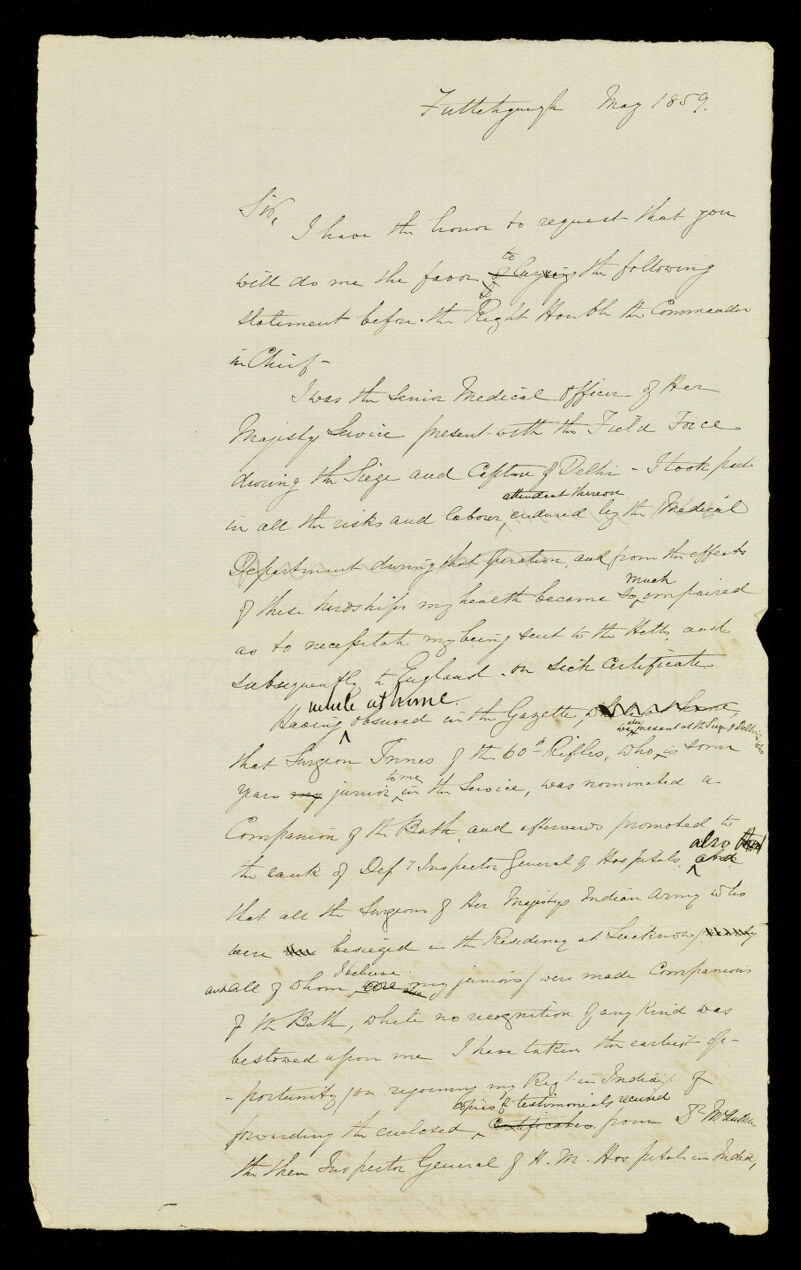 Futtehgurgh May 1859.
Sir,
I have the honor to request that you
will do me the favor to lay the following
statement before the Right Honble the Commander
in Chief -
I was the Senior Medical Officer of Her
Majesty Service present with the Field Force
during the Siege and Capture of Delhi - I took part
attendant thereon
in all the risks and labour endured by the Medical
Department during that Operation, and from the effects
much
of these hardships my health became so impaired
as to necessitate my being sent to the Hills, and
subsequently to England - on sick certificate
while at home.
Having observed in the Gazette
was also present at the Siege of Delhi & who
that Surgeon Innes of the 60th Rifles, who is some
to me
years my junior in the Service, was nominated a
Companion of the Bath, and afterwards promoted to
also
the rank of Depy Inspector General of Hospitals, and
that all the Surgeons of Her Majestys Indian Army who
were besieged in the Residency at Lucknow
I believe
and all of whom are my juniors / were made Companions
of the Bath, while no recognition of any kind was
bestowed upon me I have taken the earliest op-
- portunity / on rejoining my Regt in India / of
copies of testimonials received
forwarding the enclosed certificates from Dr
the then Inspector General of H. M. Hospitals in India,